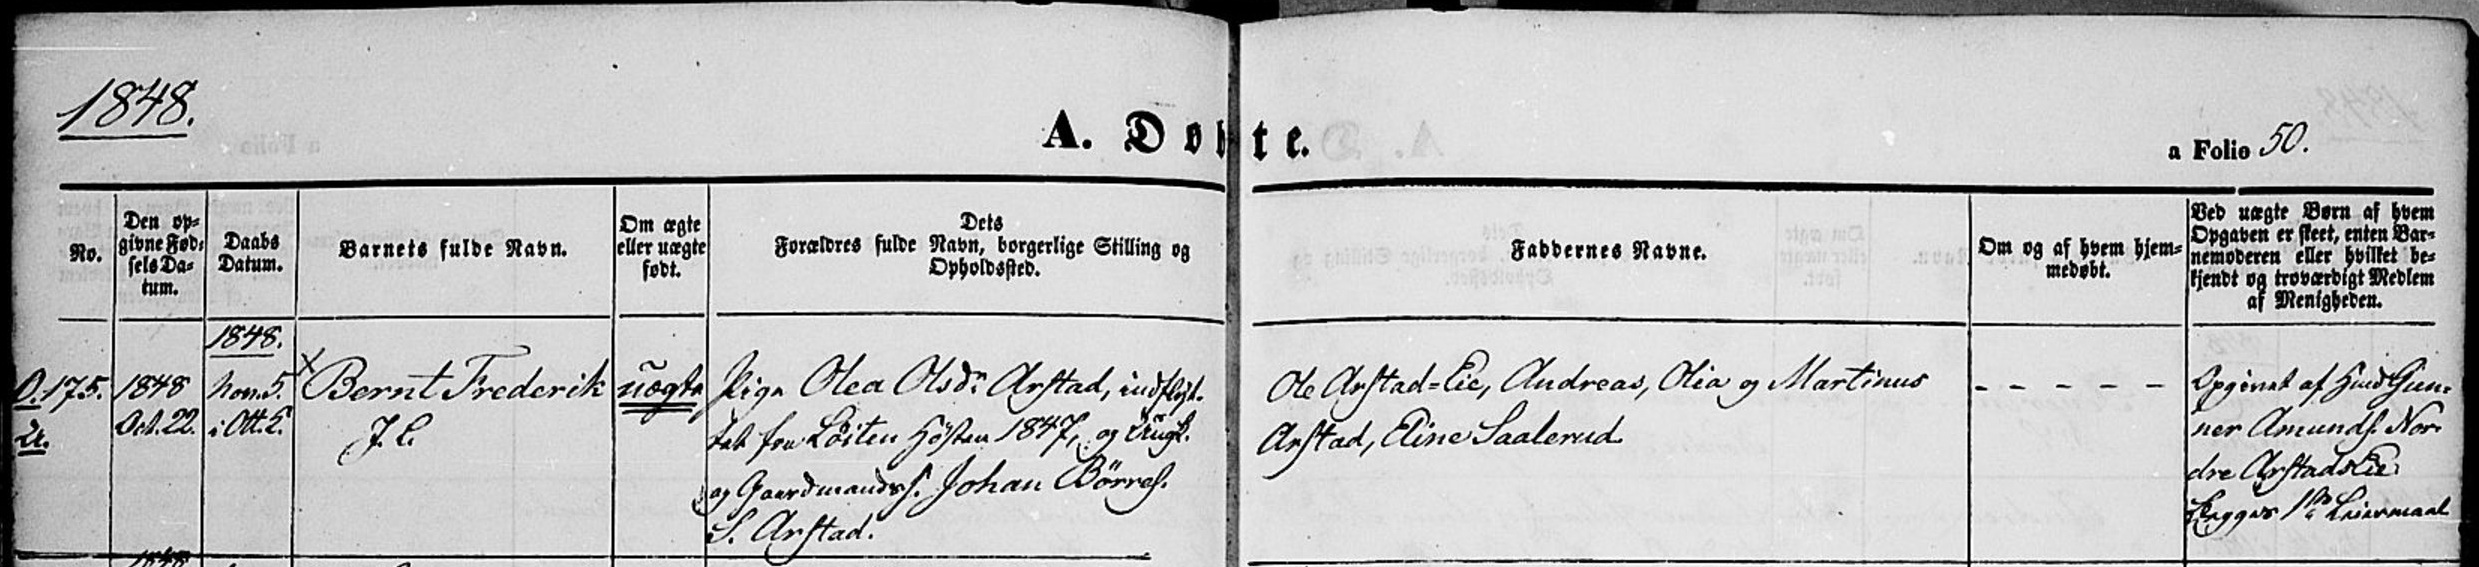 1848.
A. Døbte.
a Folio 50.
No.
Den op-
givne Fød-
sels Da-
tum.
Daabs
Datum.
Barnets fulde Navn.
Om ægte
eller uægte
født.
Dets
Forældres fulde Navn, borgerlige Stilling og
Opholdssted.
Faddernes Navne.
Om og af hvem hjem-
medøbt.
Ved uægte Børn af hvem
Opgaven er skeet, enten Bar-
nemoderen eller hvilket be-
kjendt og troværdigt Medlem
af Menigheden.
175.
1848
Oct. 22.
1848.
Nov. 5.
i Ott. E.
Bernt Frederik
uægte
Pige Olea Olsdr Arstad, indflyt-
tet fra Löiten Hösten 1847, og
og Gaardmandss. Johan Börres.
S. Arstad.
Ole Arstad-Eie, Andreas, Olia og Martinus
Arstad, Eline Saalerud.
- - - - -
Opgivet af Gun-
ner Amunds. Nor-
dre Arstadseie
Leiermaal
1848